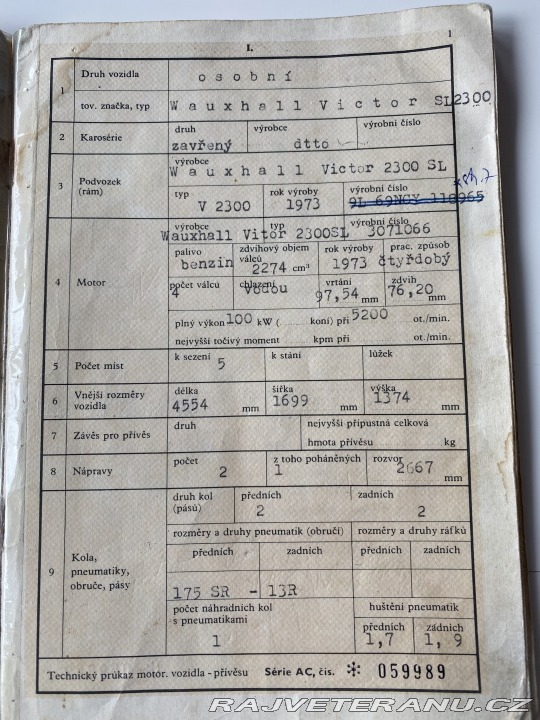 I.
1
1
Druh vozidla
osobní
tov. značka, typ
Wauxhall Victor SL2300
2 Karosérie
druh výrobce výrobní číslo
zavřený dtto
3 Podvozek (rám)
výrobce
Wauxhall Victor 2300 SL
typ rok výroby výrobní číslo
V 2300 1973 9L 69NCX 118965
4 Motor
výrobce typ výrobní číslo
Wauxhall Vitor 2300SL 3071066
palivo zdvihový objem válců rok výroby prac. způsob
benzin 2274 cm³ 1973 čtyřdobý
počet válců chlazení vrtání zdvih
4 vodou 97,54 mm 76,20 mm
plný výkon 100 kW (........ koní) při 5200 ot./min.
nejvyšší točivý moment kpm při ot./min.
5 Počet míst
k sezení k stání lůžek
5
6 Vnější rozměry vozidla
délka šířka výška
4554 mm 1699 mm 1374 mm
7 Závěs pro přívěs
druh nejvyšší přípustná celková
hmota přívěsu kg
8 Nápravy
počet z toho poháněných rozvor
2 1 2667 mm
9 Kola, pneumatiky, obruče, pásy
druh kol (pásů) předních zadních
2 2
rozměry a druhy pneumatik (obručí) rozměry a druhy ráfků
předních zadních předních zadních
175 SR - 13R
počet náhradních kol s pneumatikami huštění pneumatik
předních zadních
1 1,7 1,9
Technický průkaz motor. vozidla - přívěsu Série AC, čís. 059989
RAJVETERANU.CZ